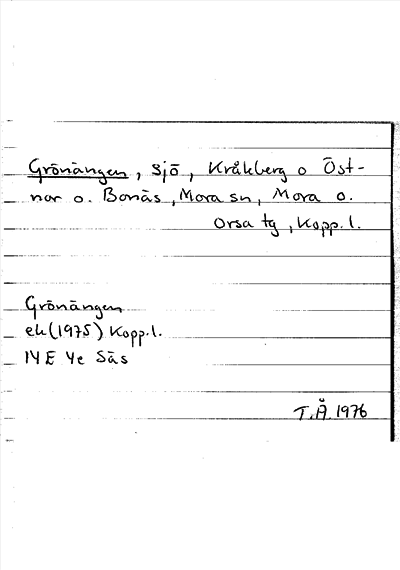 Grönängen, sjö, Kråkberg o Öst-
nor o. Bonäs, Mora sn, Mora o.
Orsa tg, Kopp. l.
Grönängen
ek (1975) Kopp. l.
14 E 4e Säs
T.Å. 1976